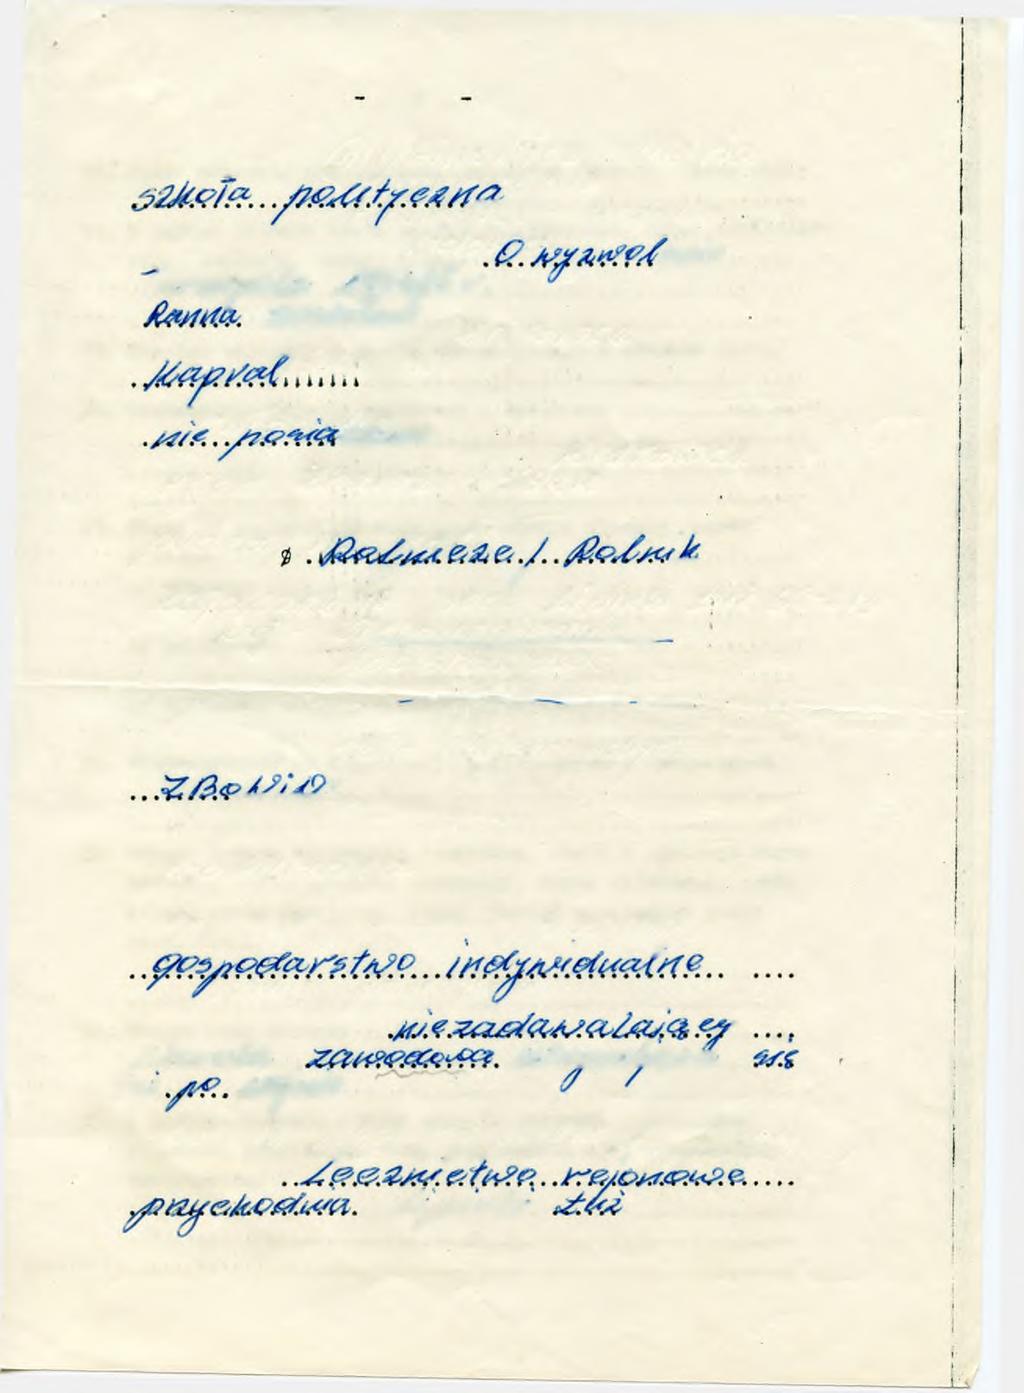 - -
szkoła...polityczna
.O..wyzwol
-
Ranna.
.Kapral......
.nie..posia
.Rolnicze./..Rolnik
...ZBoWiD
..gospodarstwo...indywidualne.. ....
.niezadawalający ....
zawodowa.
.po..
..Lecznictwo..rejonowe.....
przychodnia.